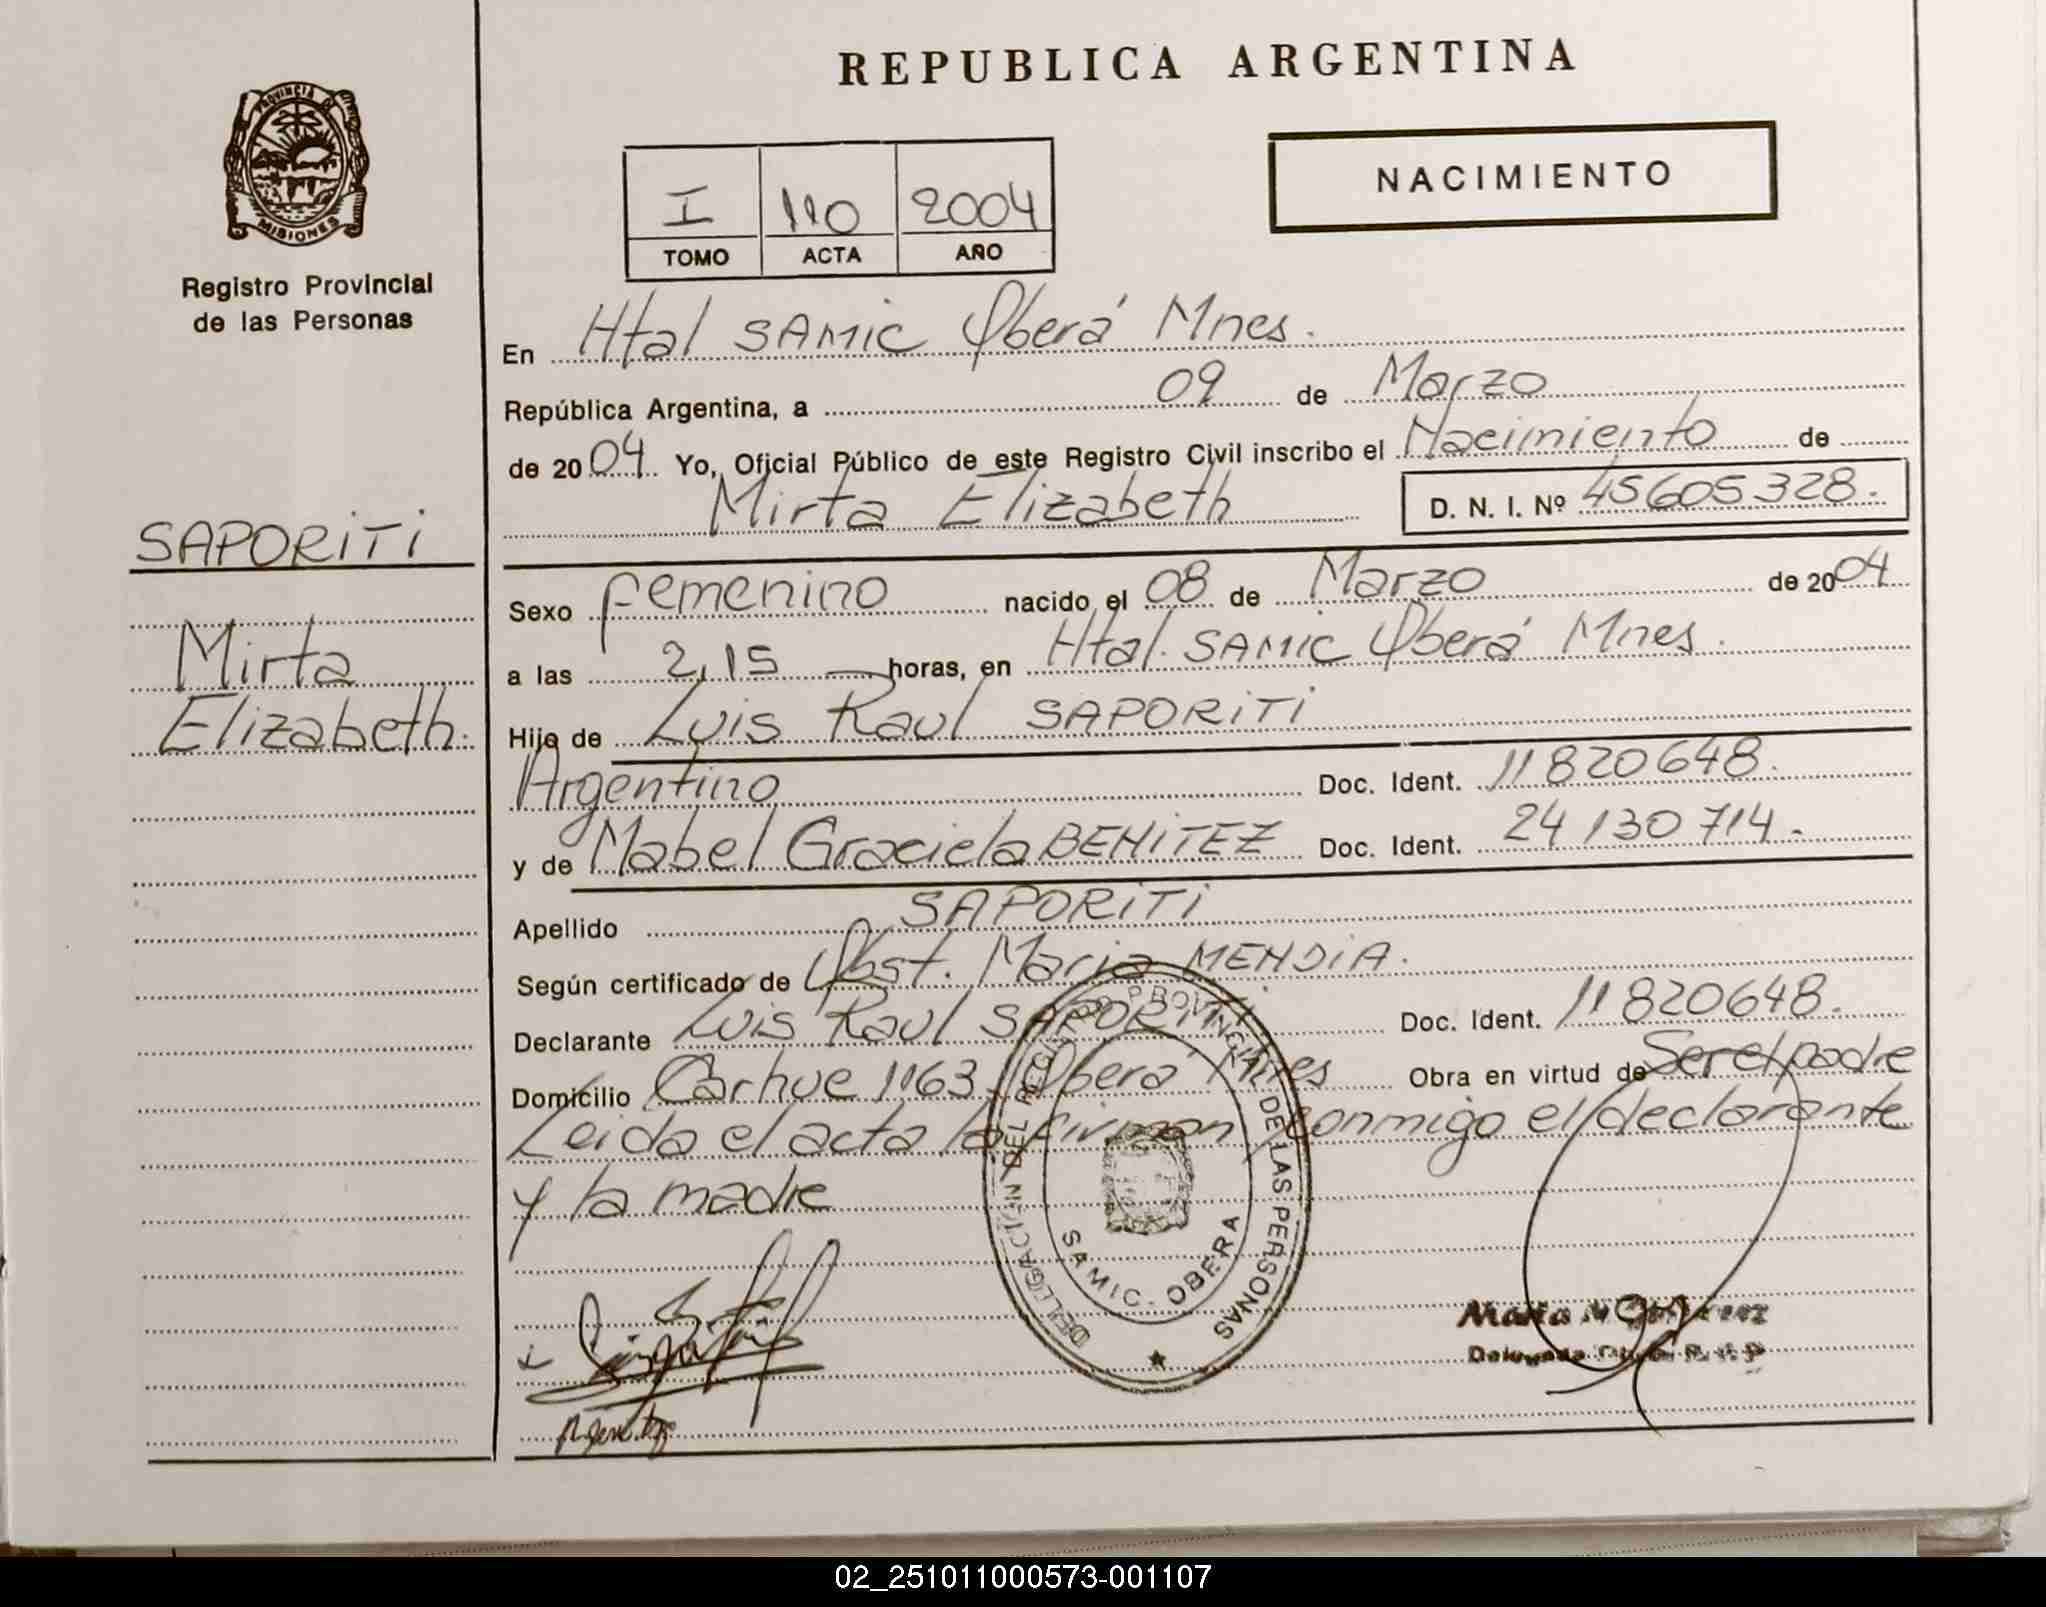 REPUBLICA ARGENTINA
PROVINCIA DE MISIONES
Registro Provincial
de las Personas
I 110 2004
TOMO ACTA AÑO
NACIMIENTO
En Htal SAMIC Oberá Mnes.
República Argentina, a 09 de Marzo
de 2004 Yo, Oficial Público de este Registro Civil inscribo el Nacimiento de
Mirta Elizabeth D. N. I. Nº 45605328.
SAPORITI
Mirta
Elizabeth.
Sexo femenino nacido el 08 de Marzo de 2004
a las 2,15 horas, en Htal. SAMIC Oberá Mnes.
Hija de Luis Raul SAPORITI
Argentino Doc. Ident. 11820648.
y de Mabel Graciela BENITEZ Doc. Ident. 24130714.
Apellido SAPORITI
Según certificado de Obst. Maria MENDIA.
Declarante Luis Raul SAPORITI Doc. Ident. 11820648.
Domicilio Carhue 1163 Oberá Mnes Obra en virtud de Ser el padre
Leida el acta la firman conmigo el declarante
y la madre
DELEGACION DEL REGISTRO PROVINCIAL DE LAS PERSONAS
SAMIC - OBERA
Maria
02_251011000573-001107